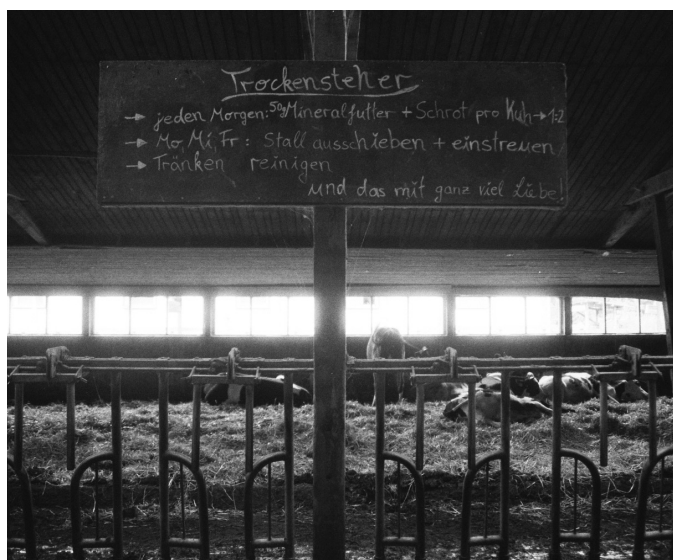 Trockensteher
→ jeden Morgen: 50g Mineralfutter + Schrot pro Kuh → 1:2
→ Mo, Mi, Fr: Stall ausschieben + einstreuen
→ Tränken reinigen
und das mit ganz viel Liebe!